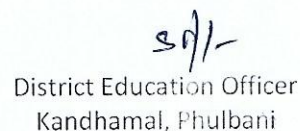 Sd/-
District Education Officer
Kandhamal, Phulbani